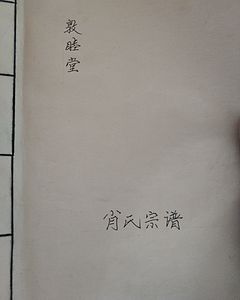 敦睦堂
肖氏宗谱